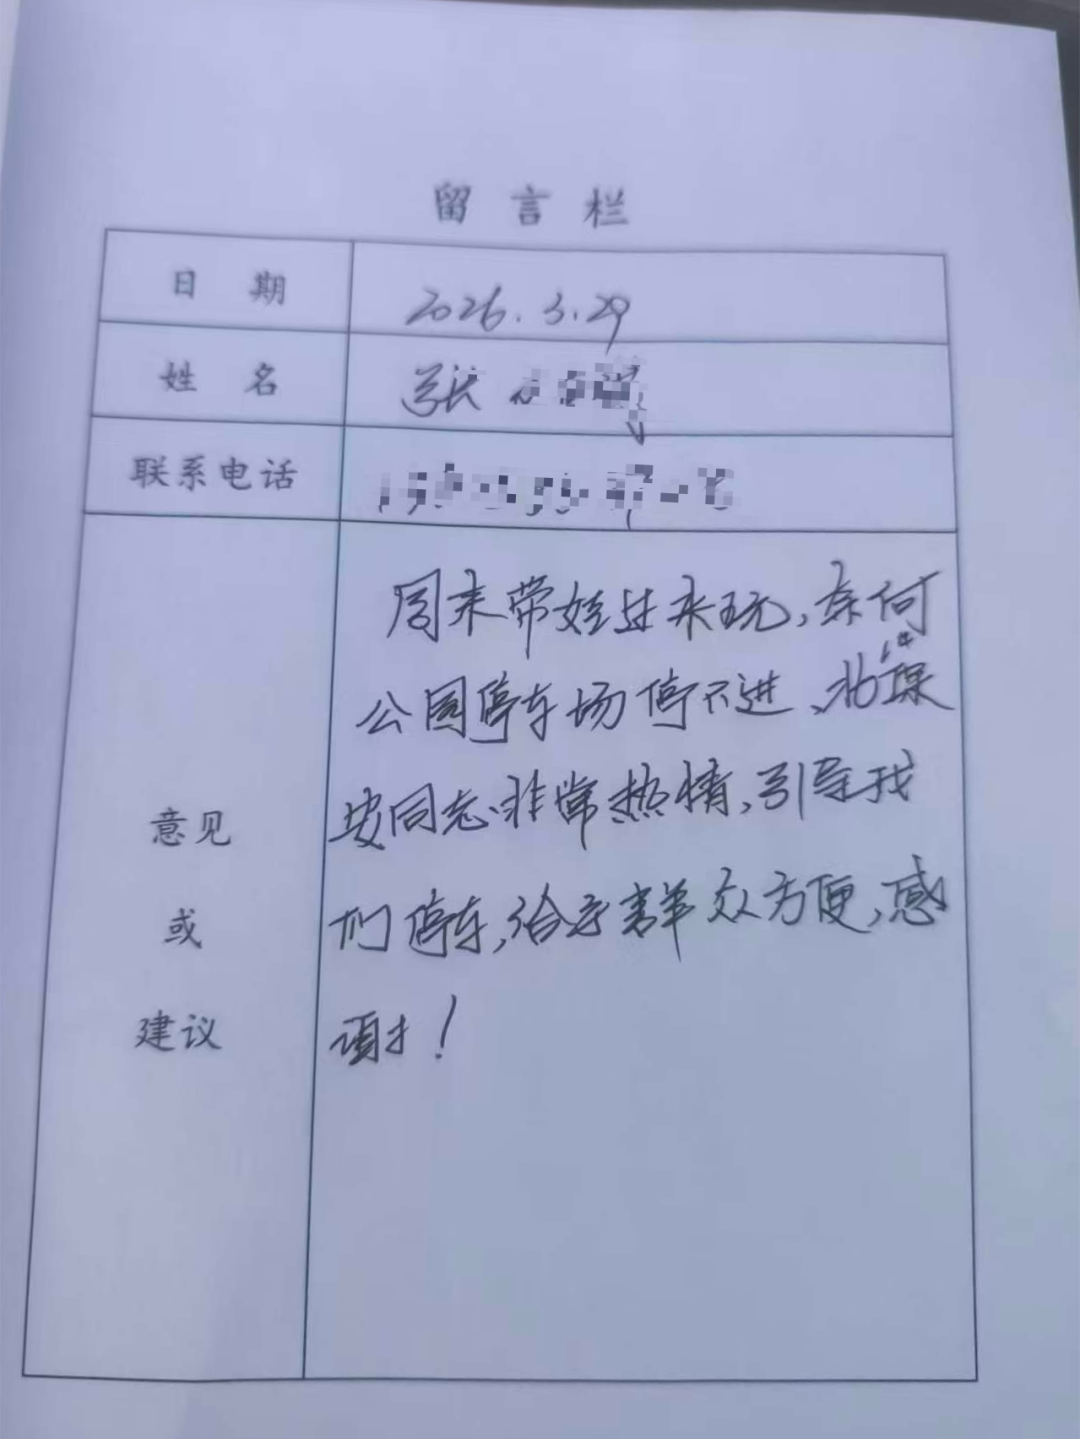 留言栏
日 期 2026.3.29
姓 名 张
联系电话
意见
或
建议
周末带娃过来玩,奈何
公园停车场停不进、保
安同志非常热情,引导我
们停车,给予群众方便,感
谢!